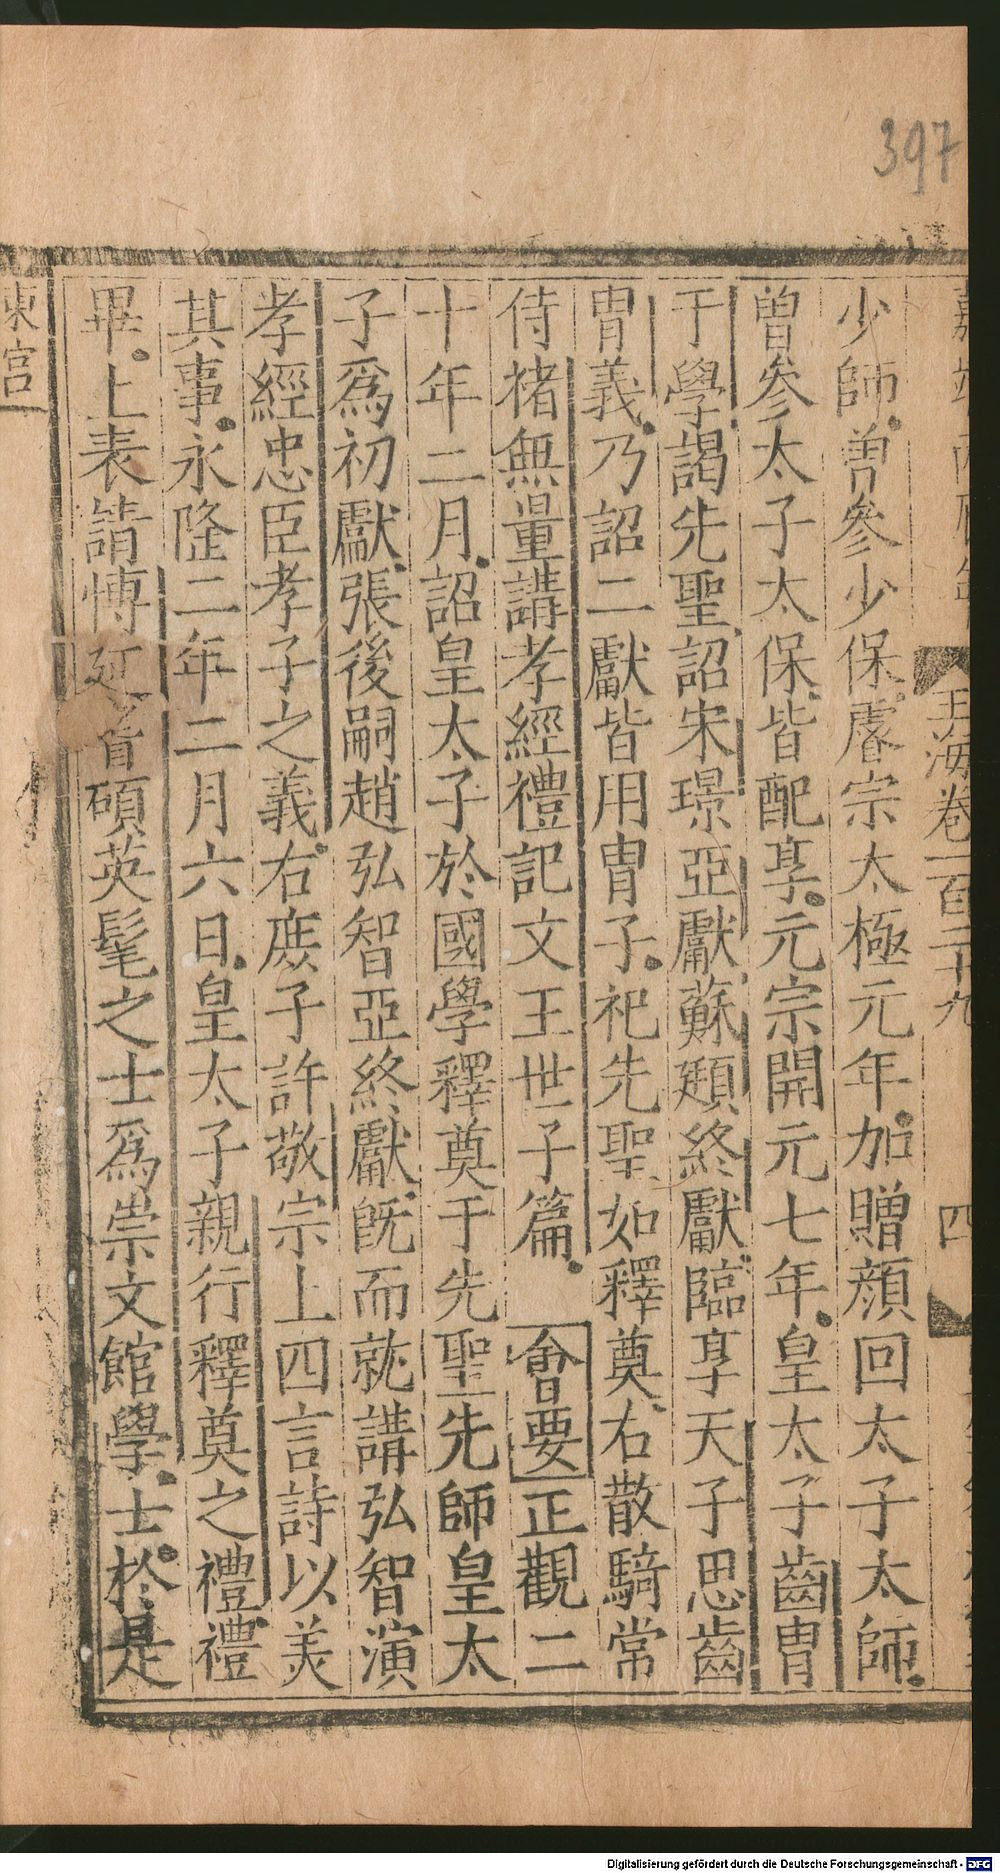 397
玉海卷一百二十九
四
少師曽參少保睿宗太極元年加贈顔回太子太師
曽參太子太保皆配享元宗開元七年皇太子齒胄
于學謁先聖詔宋璟亞獻蘇頲終獻臨享天子思齒
胄義乃詔二獻皆用胄子祀先聖如釋奠右散騎常
侍褚無量講孝經禮記文王世子篇 會要正觀二
十年二月詔皇太子於國學釋奠于先聖先師皇太
子爲初獻張後嗣趙弘智亞終獻旣而就講弘智演
孝經忠臣孝子之義右庻子許敬宗上四言詩以美
其事永隆二年二月六日皇太子親行釋奠之禮禮
畢上表請愽延耆碩英髦之士爲崇文館學士於是
東宫
Digitalisierung gefördert durch die Deutsche Forschungsgemeinschaft - DFG